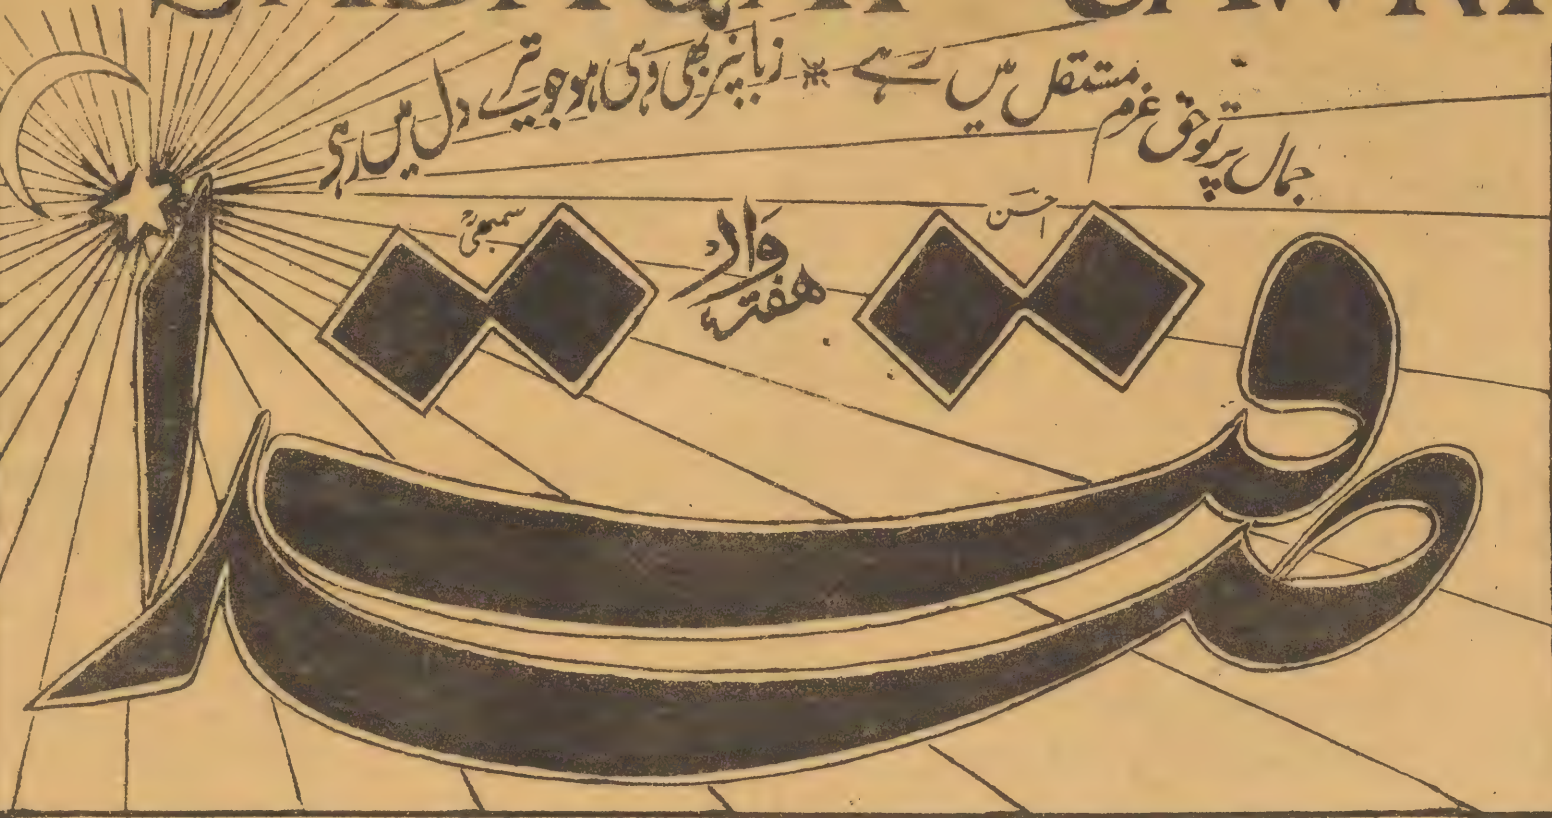 جمال پرتو حق عزم مستقل میں رہے * زباںپر بھی وہی ہو جو تیرے دل میں رہی
احسن
هفتہ وار
صداقت